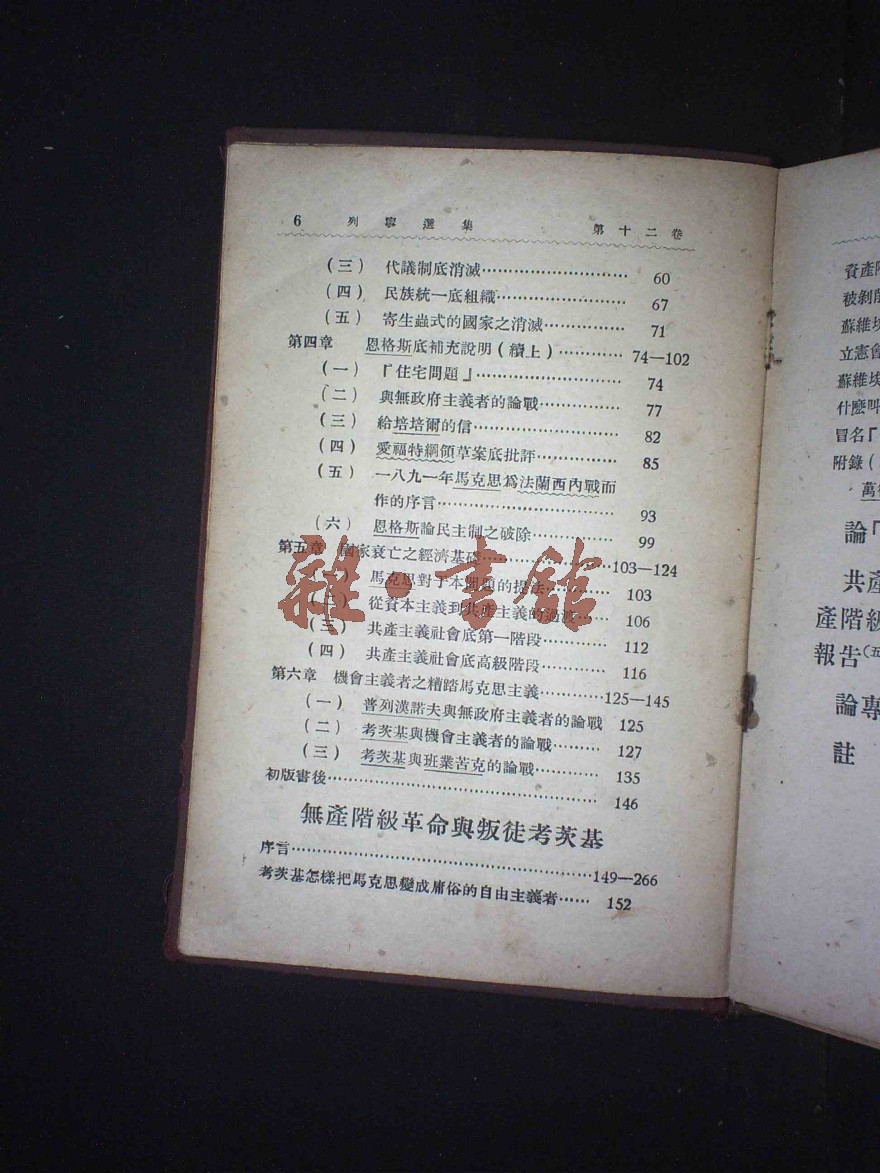 6 列寧選集 第十二卷
(三) 代議制底消滅………………………… 60
(四) 民族統一底組織……………………… 67
(五) 寄生蟲式的國家之消滅…………… 71
第四章 恩格斯底補充說明(續上)………… 74—102
(一) 『住宅問題』………………………… 74
(二) 與無政府主義者的論戰…………… 77
(三) 給培培爾的信……………………… 82
(四) 愛福特綱領草案底批評…………… 85
(五) 一八九一年馬克思爲法蘭西內戰而
作的序言…………………………… 93
(六) 恩格斯論民主制之破除…………… 99
第五章 國家衰亡之經濟基礎……………………103—124
(一) 馬克思對于本問題的提法………… 103
(二) 從資本主義到共產主義的過渡…… 106
(三) 共產主義社會底第一階段………… 112
(四) 共產主義社會底高級階段………… 116
第六章 機會主義者之糟踏馬克思主義…………125—145
(一) 普列漢諾夫與無政府主義者的論戰 125
(二) 考茨基與機會主義者的論戰……… 127
(三) 考茨基與班業苦克的論戰………… 135
初版書後…………………………………………… 146
無產階級革命與叛徒考茨基
序言…………………………………………………149—266
考茨基怎樣把馬克思變成庸俗的自由主義者…… 152
雜·書館
資產階
被剝削
蘇維埃
立憲會
蘇維埃
什麽叫
冒名『
附錄(
萬
論『
共產
產階級
報告(五
論專
註